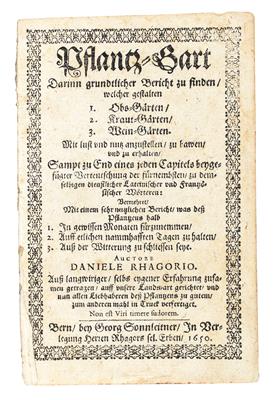 Pflantz-Gart
Darinn grundtlicher Bericht zu finden/
welcher gestalten
1. Obs-Gärten/
2. Kraut-Gärten/
3. Wein-Gärten.
Mit lust und nutz anzustellen/ zu bawen/
und zu erhalten/
Sampt zu End eines jeden Capitels beyge-
fügter Verteutschung der fürnembsten/ zu dem-
selbigen dienstlicher Lateinischer und Frantzö-
sischer Wörteren:
Vermehret/
Mit einem sehr nutzlichen Bericht/ was deß
Pflantzens halb
1. In gewissen Monaten fürzunemmen/
2. Auff etlichen nammhafften Tagen zu halten/
3. Auß der Witterung zu schliessen seye.
AUCTORE
DANIELE RHAGORIO.
Auß langwiriger/ selbs eygener Erfahrung zusa-
men getragen/ auff unsere Landsart gerichtet/ und
nun allen Liebhaberen deß Pflantzens zu gutem/
zum anderen mahl in Truck verfertiget.
Non est Viri timere sudorem.
Bern/ bey Georg Sonnleitner/ In Ver-
legung Herren Rhagors sel. Erben/ 1650.